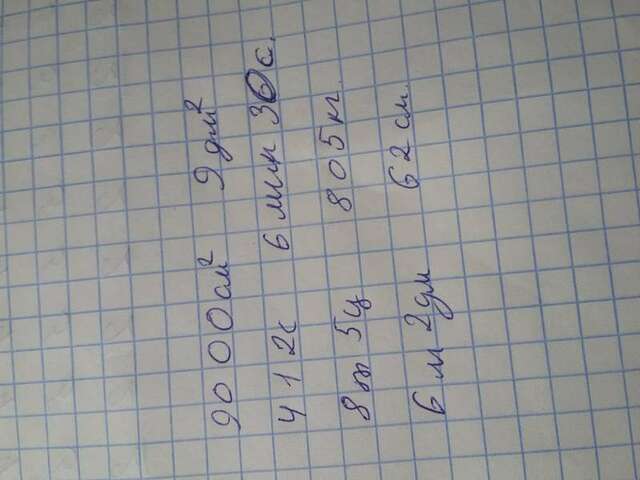 9000 см² 9 дм²
412 с 6 мин 30 с.
8 т 5 ц 805 кг.
6 м 2 дм 62 см.